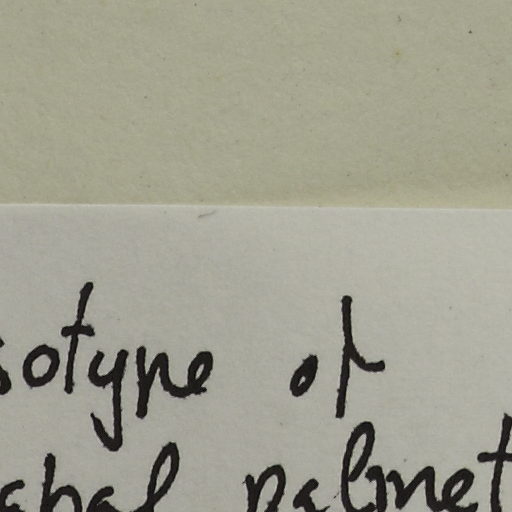 sotype of
abal palmet